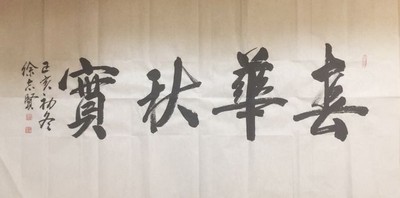 春華秋實
己亥初冬
徐志賢